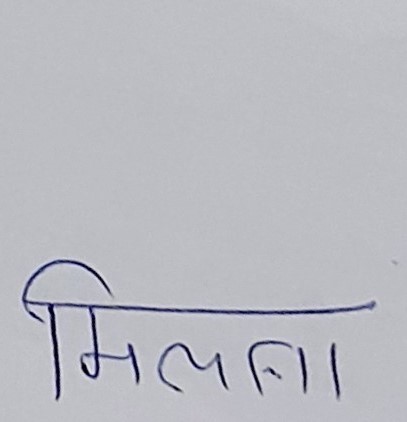 मिलना